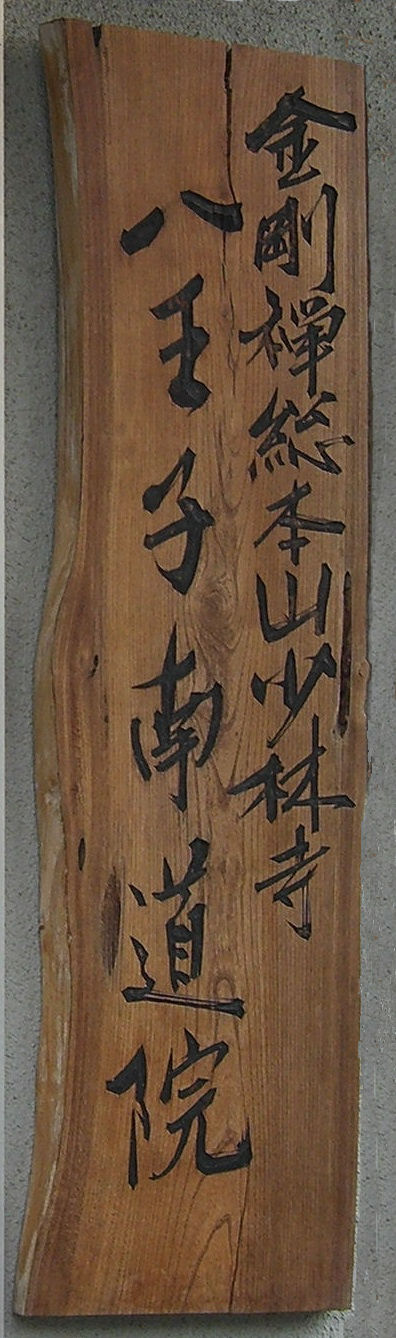 金剛禅総本山少林寺
八王子南道院